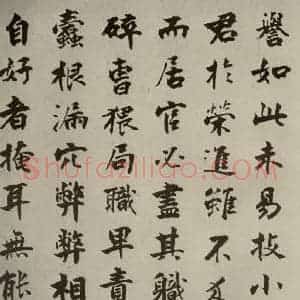 譽如此未易技小
君於榮進雖不
而居官必盡其職
碎曹猥局職卑責
蠹根漏穴弊弊相
自好者掩耳無能
Shufaziliao.COM